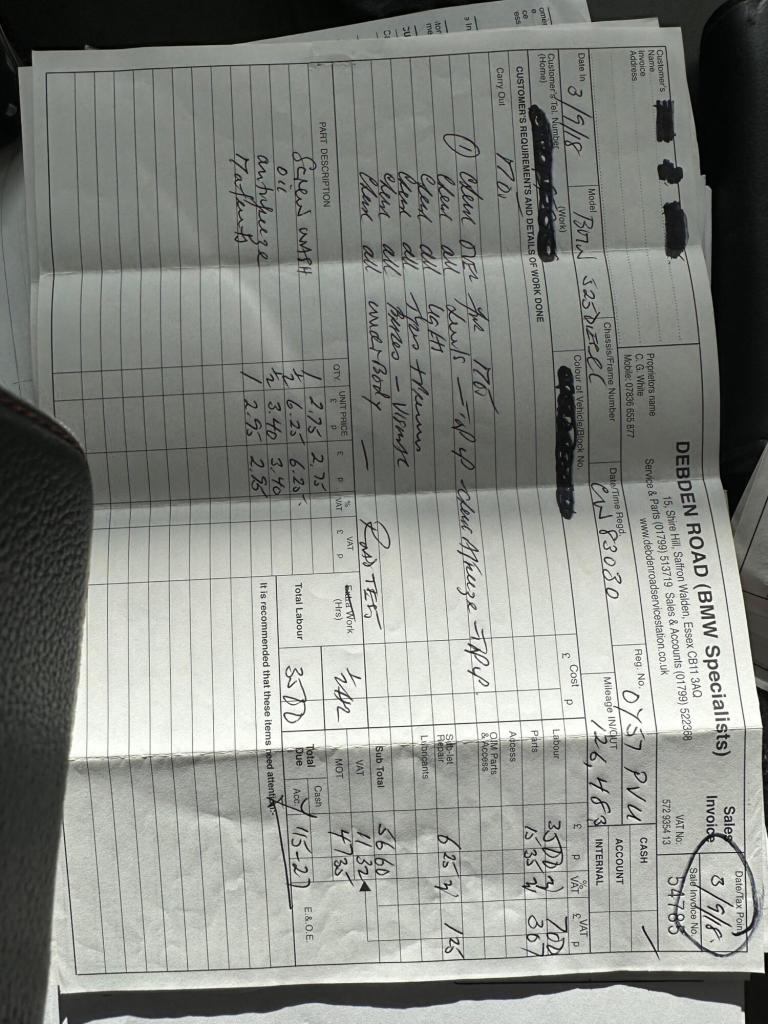 DEBDEN ROAD (BMW Specialists)
15, Shire Hill, Saffron Walden, Essex CB11 3AQ
Service & Parts (01799) 513719 Sales & Accounts (01799) 522368
www.debdenroadservicestation.co.uk
Sales
Invoice
Date/Tax Point
3/9/18.
VAT No.
572 9354 13
Sale Invoice No.
54785
Proprietors name
C. G. White
Mobile: 07836 655 877
Customer's
Name
Invoice
Address
Date In 3/9/18
Model BMW 525 DIESEL
Chassis/Frame Number
Date/Time Regd.
CW83030
Reg. No. OY57 PNU
Mileage IN/OUT
126,483
CASH
ACCOUNT
INTERNAL
Customer's Tel. Number
(Home)
(Work)
Colour of Vehicle/Block No.
CUSTOMER'S REQUIREMENTS AND DETAILS OF WORK DONE
Cost
£ p
Carry Out MOT
① Check over for MOT
Check all Levels - Top up - check Antifreeze - Top up
Check all Lights
Check all Tyres +
Check all Brakes - Visual
Check all underBody - Road TEST
£ p % VAT £ VAT p
Labour 35 00 7 00
Parts 15 35 3 07
Access
O/M Parts
& Access
Sublet
Repair 6 25 1 25
Lubricants
Sub Total 56 60
VAT 11 32
MOT 47 35
Total
Due
Cash
Acc
115-27
E & O.E.
PART DESCRIPTION QTY. UNIT PRICE £ p £ p % VAT VAT £ p
Screen WASH 1 2.75 2.75
OIL ½ 6.25 6.25
antifreeze ½ 3.40 3.40
Materials 1 2.95 2.95
Extra Work
(Hrs)
Total Labour 35 00
It is recommended that these items need attention: